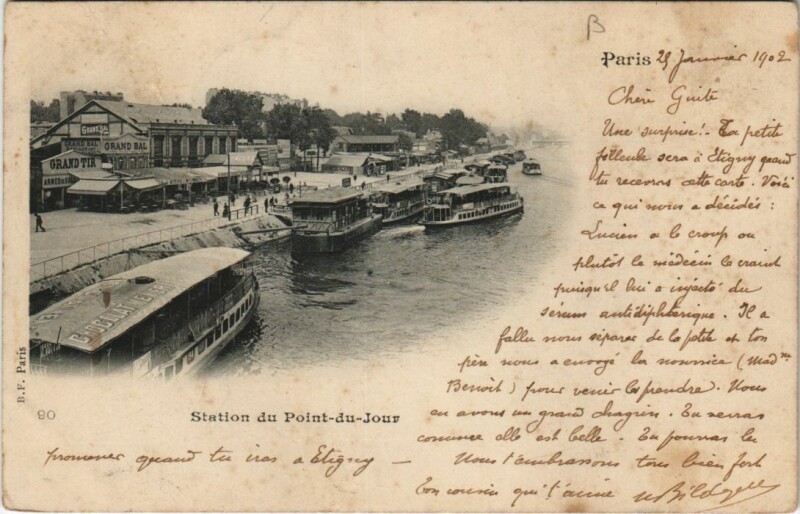 β
Paris 25 Janvier 1902
Chère Guite
Une surprise! - Ta petite
filleule sera à Etigny quand
tu recevras cette carte. Voici
ce qui nous a décidés :
Lucien a le croup ou
plutôt le médecin le craint
puisqu'il lui a injecté du
sérum antidiphtérique. Il a
fallu nous séparer de la petite et ton
père nous a envoyé la nourrice (Mad.me
Benoit) pour venir la prendre. Nous
en avons un grand chagrin. Tu verras
comme elle est belle. Tu pourras la
promener quand tu iras à Etigny —
Nous t'embrassons tous bien fort
Ton cousin qui t'aime
GRAND BAL
GRAND BAL
GRAND BAL
GRAND TIR
CHOCOLAT
B.F. Paris
90
Station du Point-du-Jour